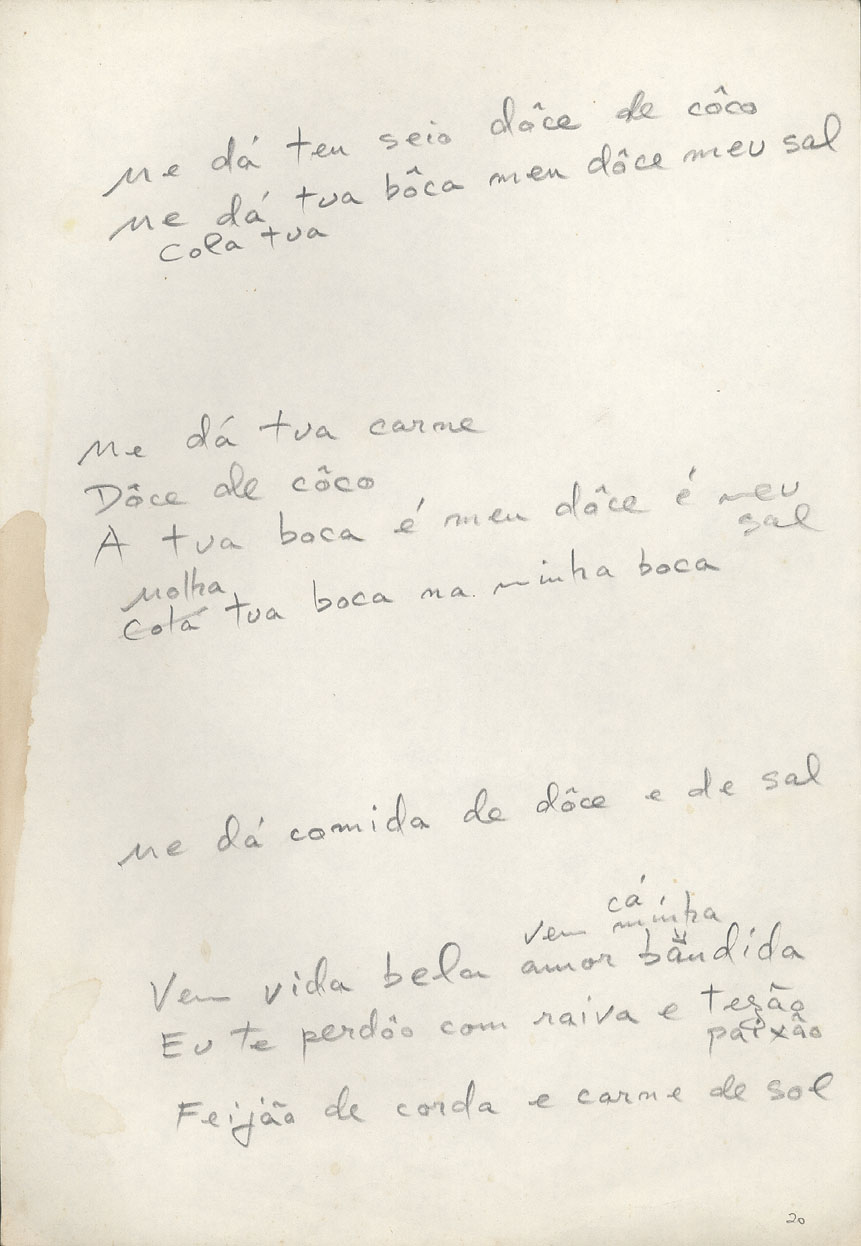 Me dá teu seio dôce de côco
Me dá tua bôca meu dôce meu sal
Cola tua
Me dá tua carne
Dôce de côco
A tua boca é meu dôce é meu
sal
Molha
Cola tua boca na minha boca
Me dá comida de dôce e de sal
cá
vem minha
Vem vida bela amor bandida
Eu te perdôo com raiva e tesão
paixão
Feijão de corda e carne de sol
20